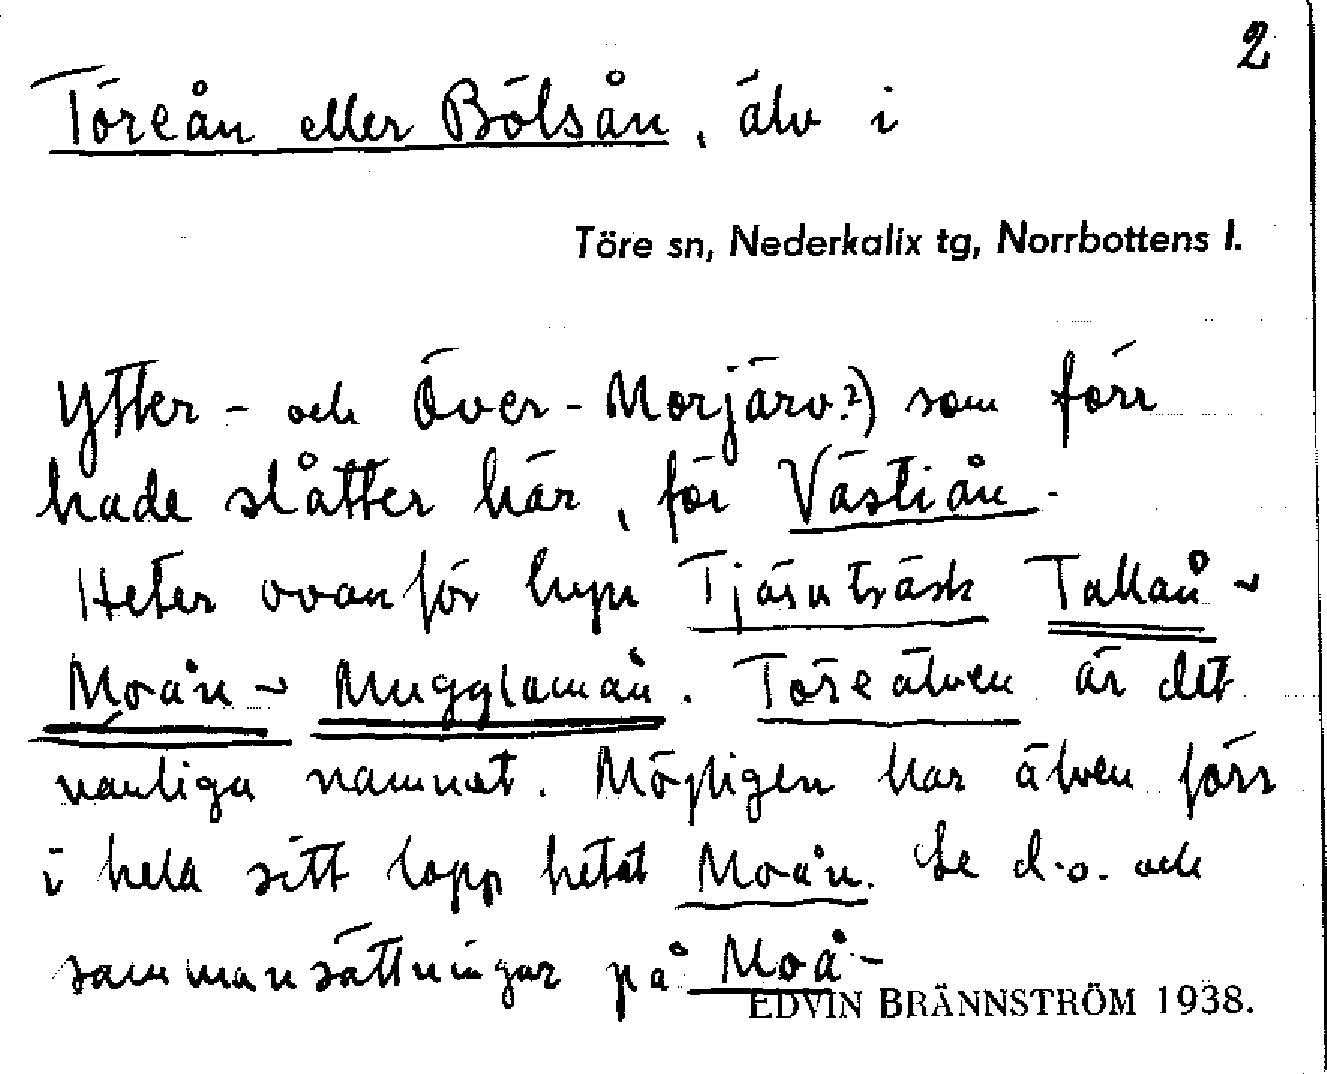 2
Töreån eller Bölsån, älv i
Töre sn, Nederkalix tg, Norrbottens l.
Ytter- och Över-Morjärv.²) som förr
hade slåtter här, för Västiån.
Heter ovanför byn Tjärnträsk Tallån ~
Moån ~ Mugglamån. Töreälven är det
vanliga namnet. Möjligen har älven förr
i hela sitt lopp hetat Moån. Se d.o. och
sammansättningar på Moå-
EDVIN BRÄNNSTRÖM 1938.